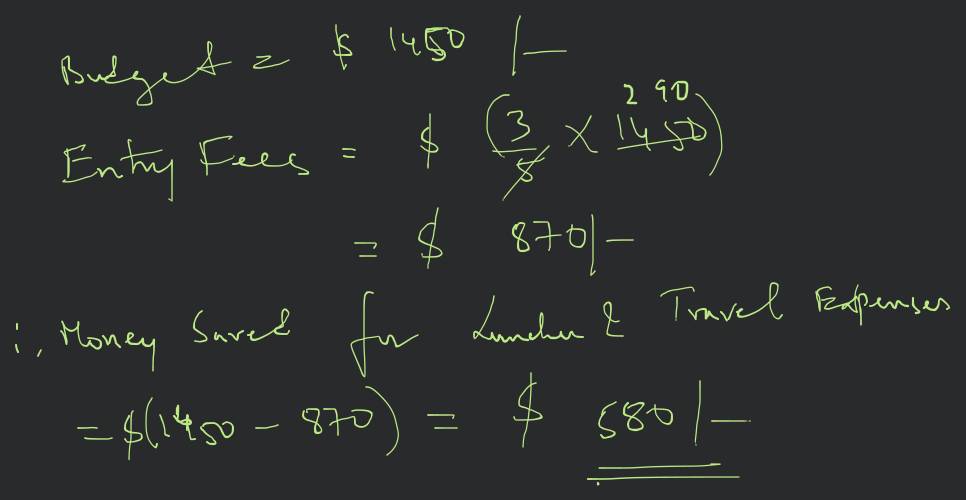 Budget = $ 1450 /-
Entry Fees = $ (3/5 × 1450) 290
= $ 870/-
∴ Money Saved for Lunch & Travel Expenses
= $(1450 - 870) = $ 580/-